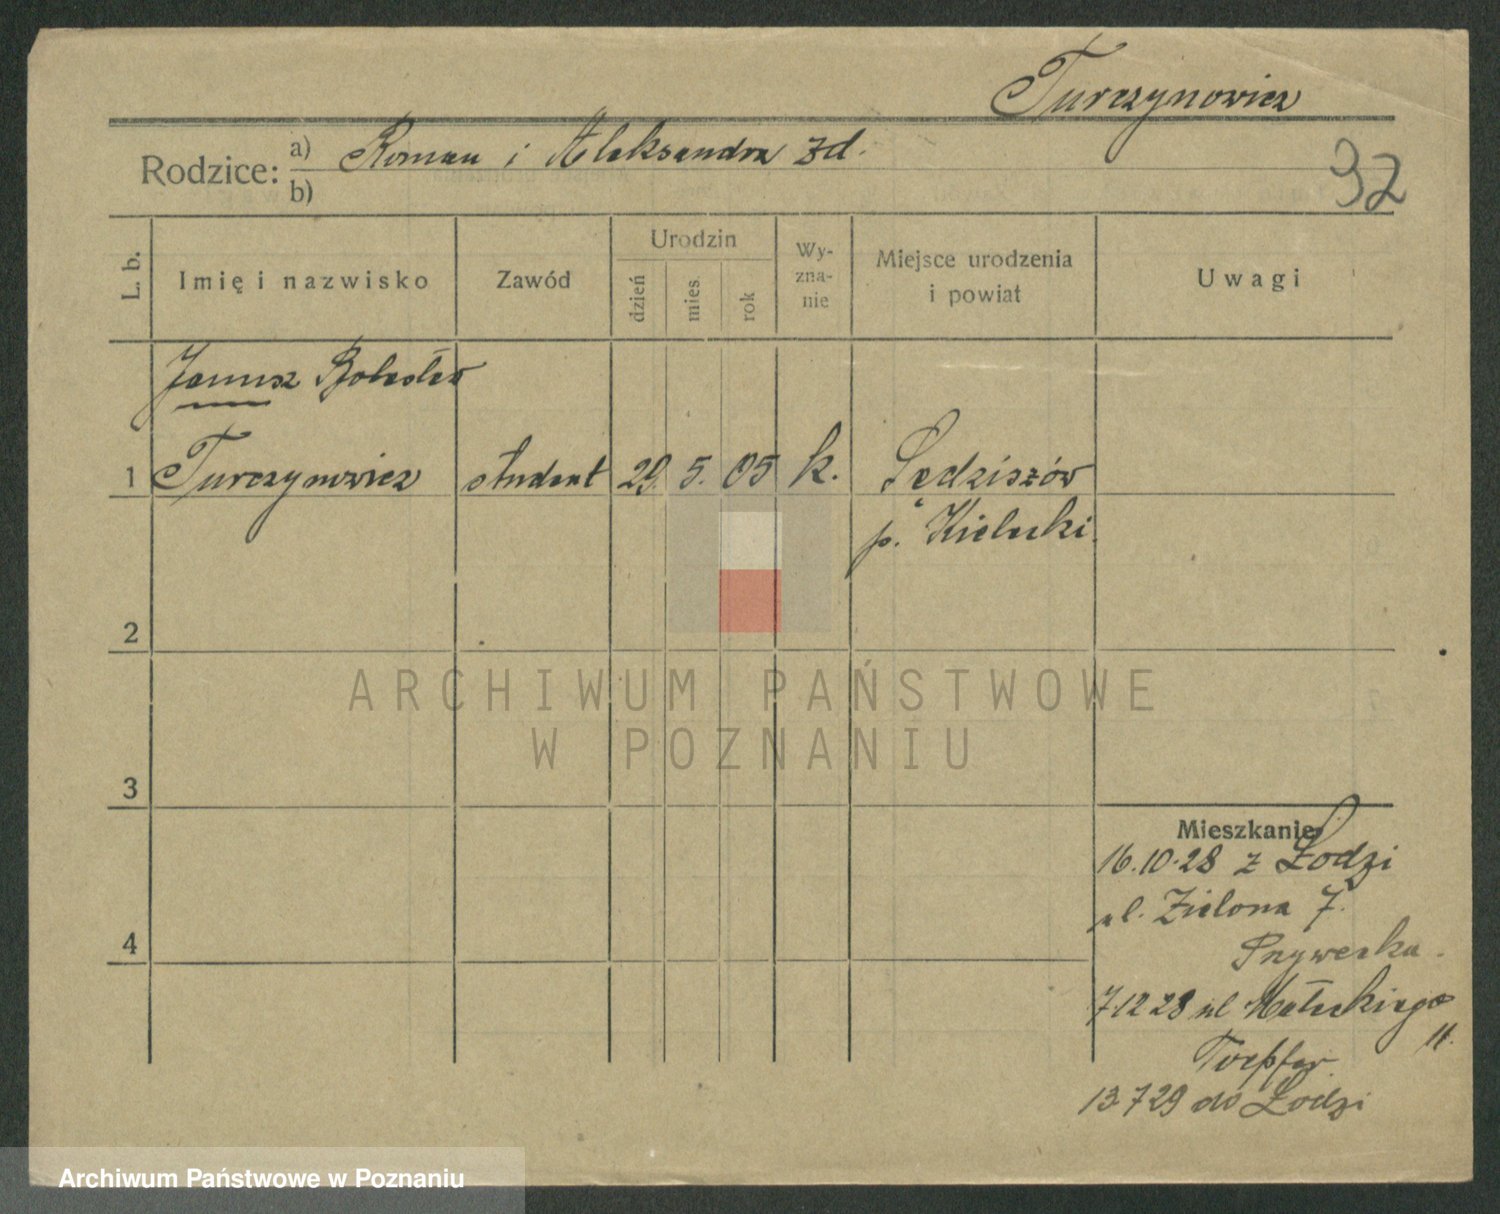 Turczynowicz
Rodzice: a) Roman i Aleksandra zd.
b)
32
L. b.
Imię i nazwisko
Zawód
Urodzin
dzień
mies.
rok
Wy-
zna-
nie
Miejsce urodzenia
i powiat
Uwagi
Janusz Bolesław
1 Turczynowicz student 29. 5. 05 k. Sędziszów
p. Kielecki.
2
3
4
Mieszkanie
16.10.28 z Łodzi
ul. Zielona 7.
7 12 28 ul Małeckiego
11.
Toepfer
13.7 29 do Łodzi
ARCHIWUM PAŃSTWOWE
W POZNANIU
Archiwum Państwowe w Poznaniu